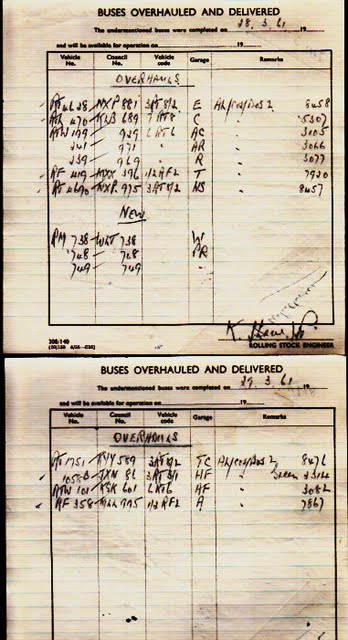 BUSES OVERHAULED AND DELIVERED
The undermentioned buses were completed on 28.3.61 19
and will be available for operation on 19
Vehicle No. Council No. Vehicle code Garage Remarks
OVERHAULS
RT 4628 NXP 881 3RT8/2 E 8458
470 C 5307
RTW 179 929 LRT6 AC 3105
241 971 " AR 3066
239 969 " R 3077
RF 419 MXX 396 1/2RF2 T " 7920
RT 4690 NXP 975 3RT8/2 NS " 8457
NEW
RM 738 WLT 738 W
748 748 PR
749 749 "
ROLLING STOCK ENGINEER
BUSES OVERHAULED AND DELIVERED
The undermentioned buses were completed on 29.3.61 19
and will be available for operation on 19
Vehicle No. Council No. Vehicle code Garage Remarks
OVERHAULS
RT 1751 KYY 589 3RT8/2 TC 8476
JXN 86 HF
RTW 101 KGK 601 LRT6 AF " 3082
RF 358 MLL 995 1/2RF2 A " 7867